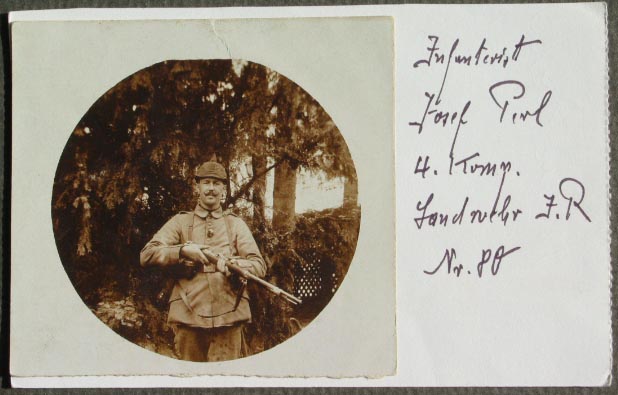 Infanterist
Josef Perl
4. Komp.
Landwehr I.R
Nr. 80